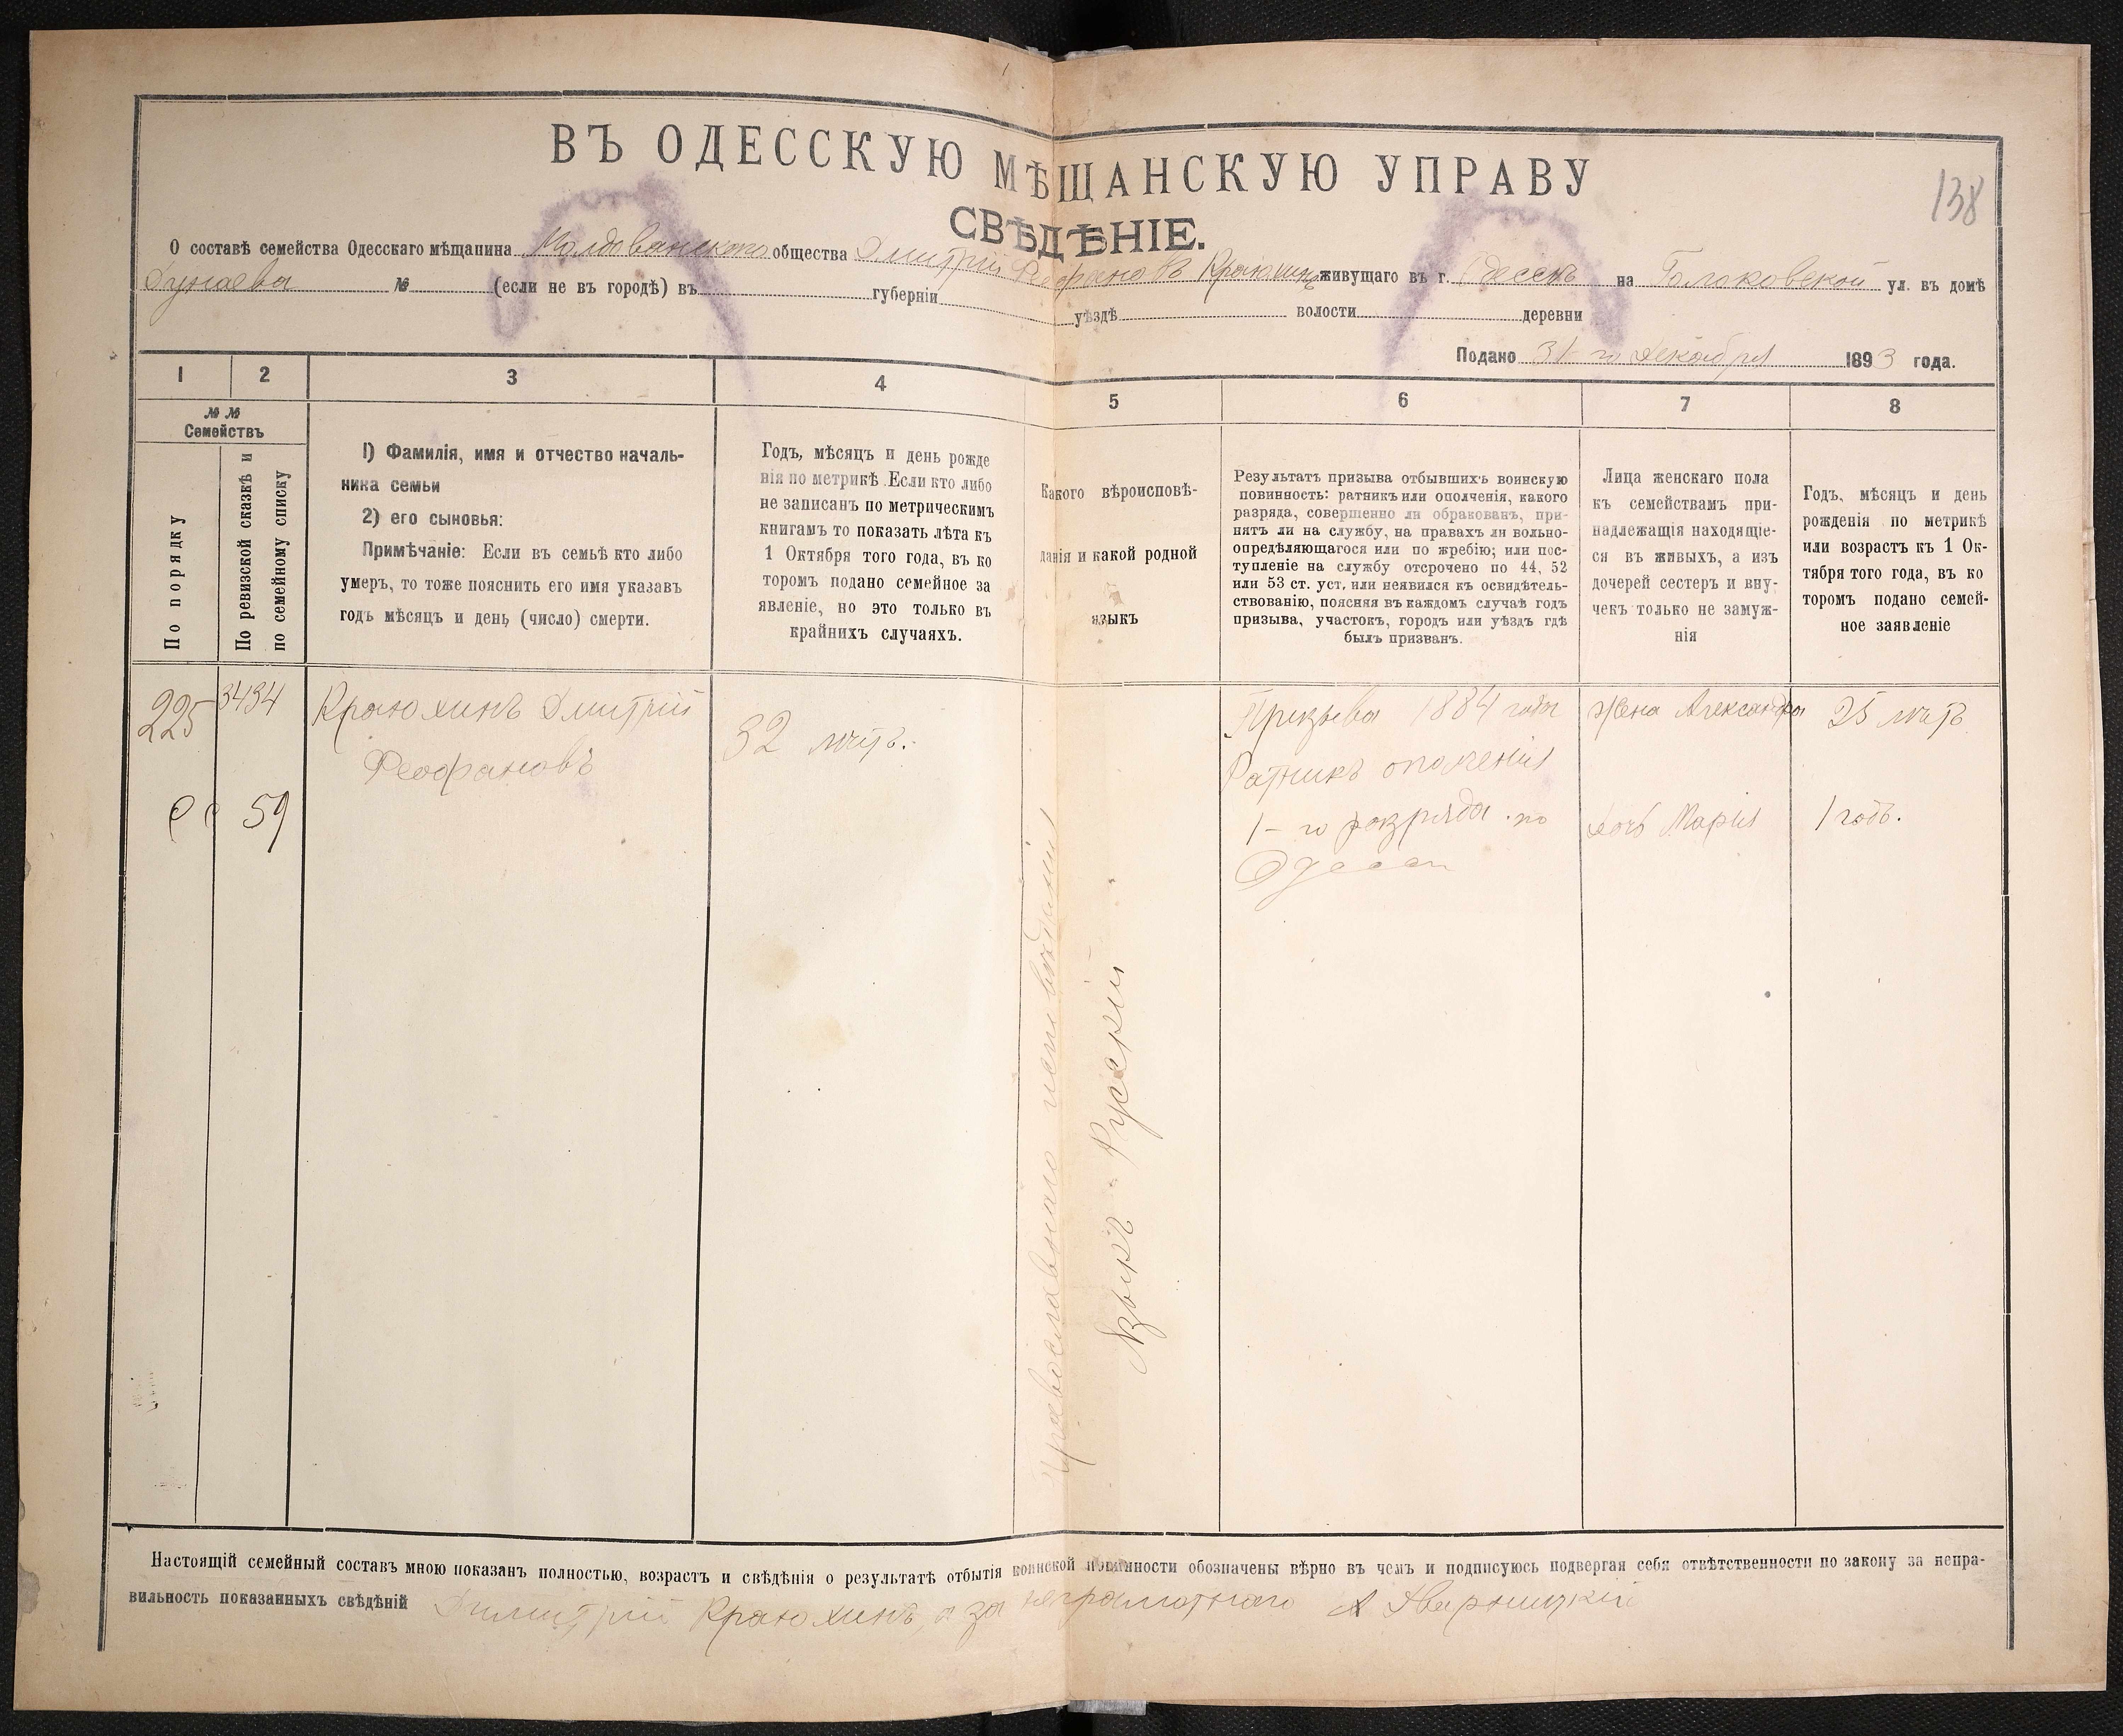 138
ВЪ ОДЕССКУЮ МѢЩАНСКУЮ УПРАВУ
СВѢДѢНІЕ.
О составѣ семейства Одесскаго мѣщанина Молдованскаго общества Дмитрій Феофановъ Краюхинъ живущаго въ г. Одессѣ на ул. въ домѣ
Дунаева № (если не въ городѣ) въ губерніи уѣздѣ волости деревни
Подано 31-го Декабря 1893 года.
1 2 3 4 5 6 7 8
№ №
Семействъ
По порядку
По ревизской сказкѣ и
по семейному списку
1) Фамилія, имя и отчество началь-
ника семьи
2) его сыновья:
Примѣчаніе: Если въ семьѣ кто либо
умеръ, то тоже пояснить его имя указавъ
годъ мѣсяцъ и день (число) смерти.
Годъ, мѣсяцъ и день рожде
нія по метрикѣ. Если кто либо
не записанъ по метрическимъ
книгамъ то показать лѣта къ
1 Октября того года, въ ко
торомъ подано семейное за
явленіе, но это только въ
крайнихъ случаяхъ.
Какого вѣроисповѣ-
данія и какой родной
языкъ
Результатъ призыва отбывшихъ воинскую
повинность: ратникъ или ополченія, какого
разряда, совершенно ли обракованъ, при-
нятъ ли на службу, на правахъ ли вольно-
опредѣляющагося или по жребію; или пос-
тупленіе на службу отсрочено по 44, 52
или 53 ст. уст. или неявился къ освидѣтель-
ствованію, поясняя въ каждомъ случаѣ годъ
призыва, участокъ, городъ или уѣздъ гдѣ
былъ призванъ.
Лица женскаго пола
къ семействамъ при-
надлежащія находящіе-
ся въ живыхъ, а изъ
дочерей сестеръ и вну-
чекъ только не замуж-
нія
Годъ, мѣсяцъ и день
рожденія по метрикѣ
или возрастъ къ 1 Ок-
тября того года, въ ко
торомъ подано семей-
ное заявленіе
225 3434 Краюхинъ Дмитрій 32 лѣтъ. Призыва 1884 года жена Александра 25 лѣтъ
Феофановъ Ратникъ ополченія
59 1-го разряда по дочь Марія 1 годъ.
Одессѣ
Православнаго исповѣданія
Языкъ - Русскій
Настоящій семейный составъ мною показанъ полностью, возрастъ и свѣдѣнія о результатѣ отбытія воинской повинности обозначены вѣрно въ чемъ и подписуюсь подвергая себя отвѣтственности по закону за непра-
вильность показанныхъ свѣдѣній Димитрій Краюхинъ, а за неграмотнаго А